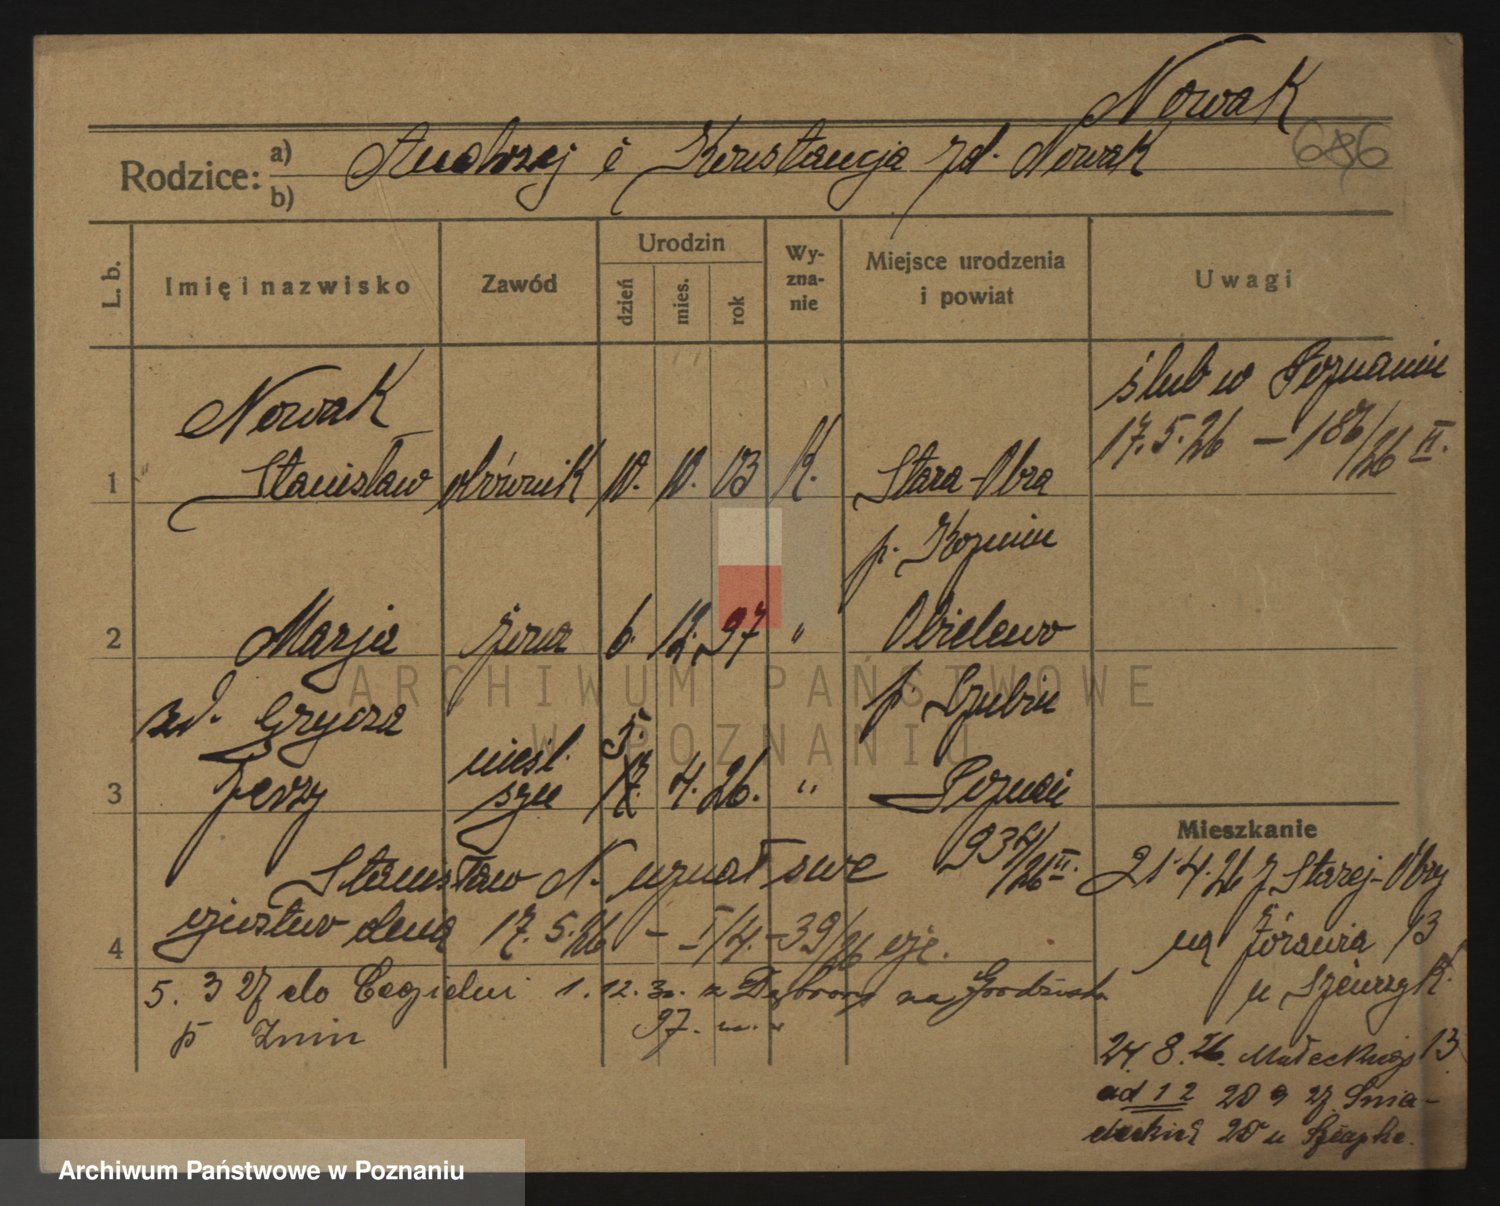 Nowak
686
Rodzice: a) Andrzej i Konstancja zd. Nowak
b)
L. b.
Imię i nazwisko
Zawód
Urodzin
dzień
mies.
rok
Wy-
zna-
nie
Miejsce urodzenia
i powiat
Uwagi
ślub w Poznaniu
17.5.26 – 186/26 II.
Nowak
1 Stanisław ołównik 10. 10. 03 k. Stara-Obra
p. Koźmin
2 Marja żona 6. 12. 97 " Obielewo
zd. Grycza p. Szubin
nieśl. 5.
3 Jerzy syn 17. 4. 26. " Poznań
934/26 II.
Stanisław N. uznał swe
4 ojcostwo dnia 17.5.26 – I/4.-39/26 oje.
5. 3 27 do Cegielni 1.12.30. z Dąbrowy na Grodziska
p Żnin 97.
Mieszkanie
21.4.26 z Starej-Obry
na Żórawia 13
u Szewczyk.
24. 8. 26. Małeckiego 13
ad 1 2 20 9 27 Śnia-
deckich 20 u
ARCHIWUM PAŃSTWOWE
W POZNANIU
Archiwum Państwowe w Poznaniu